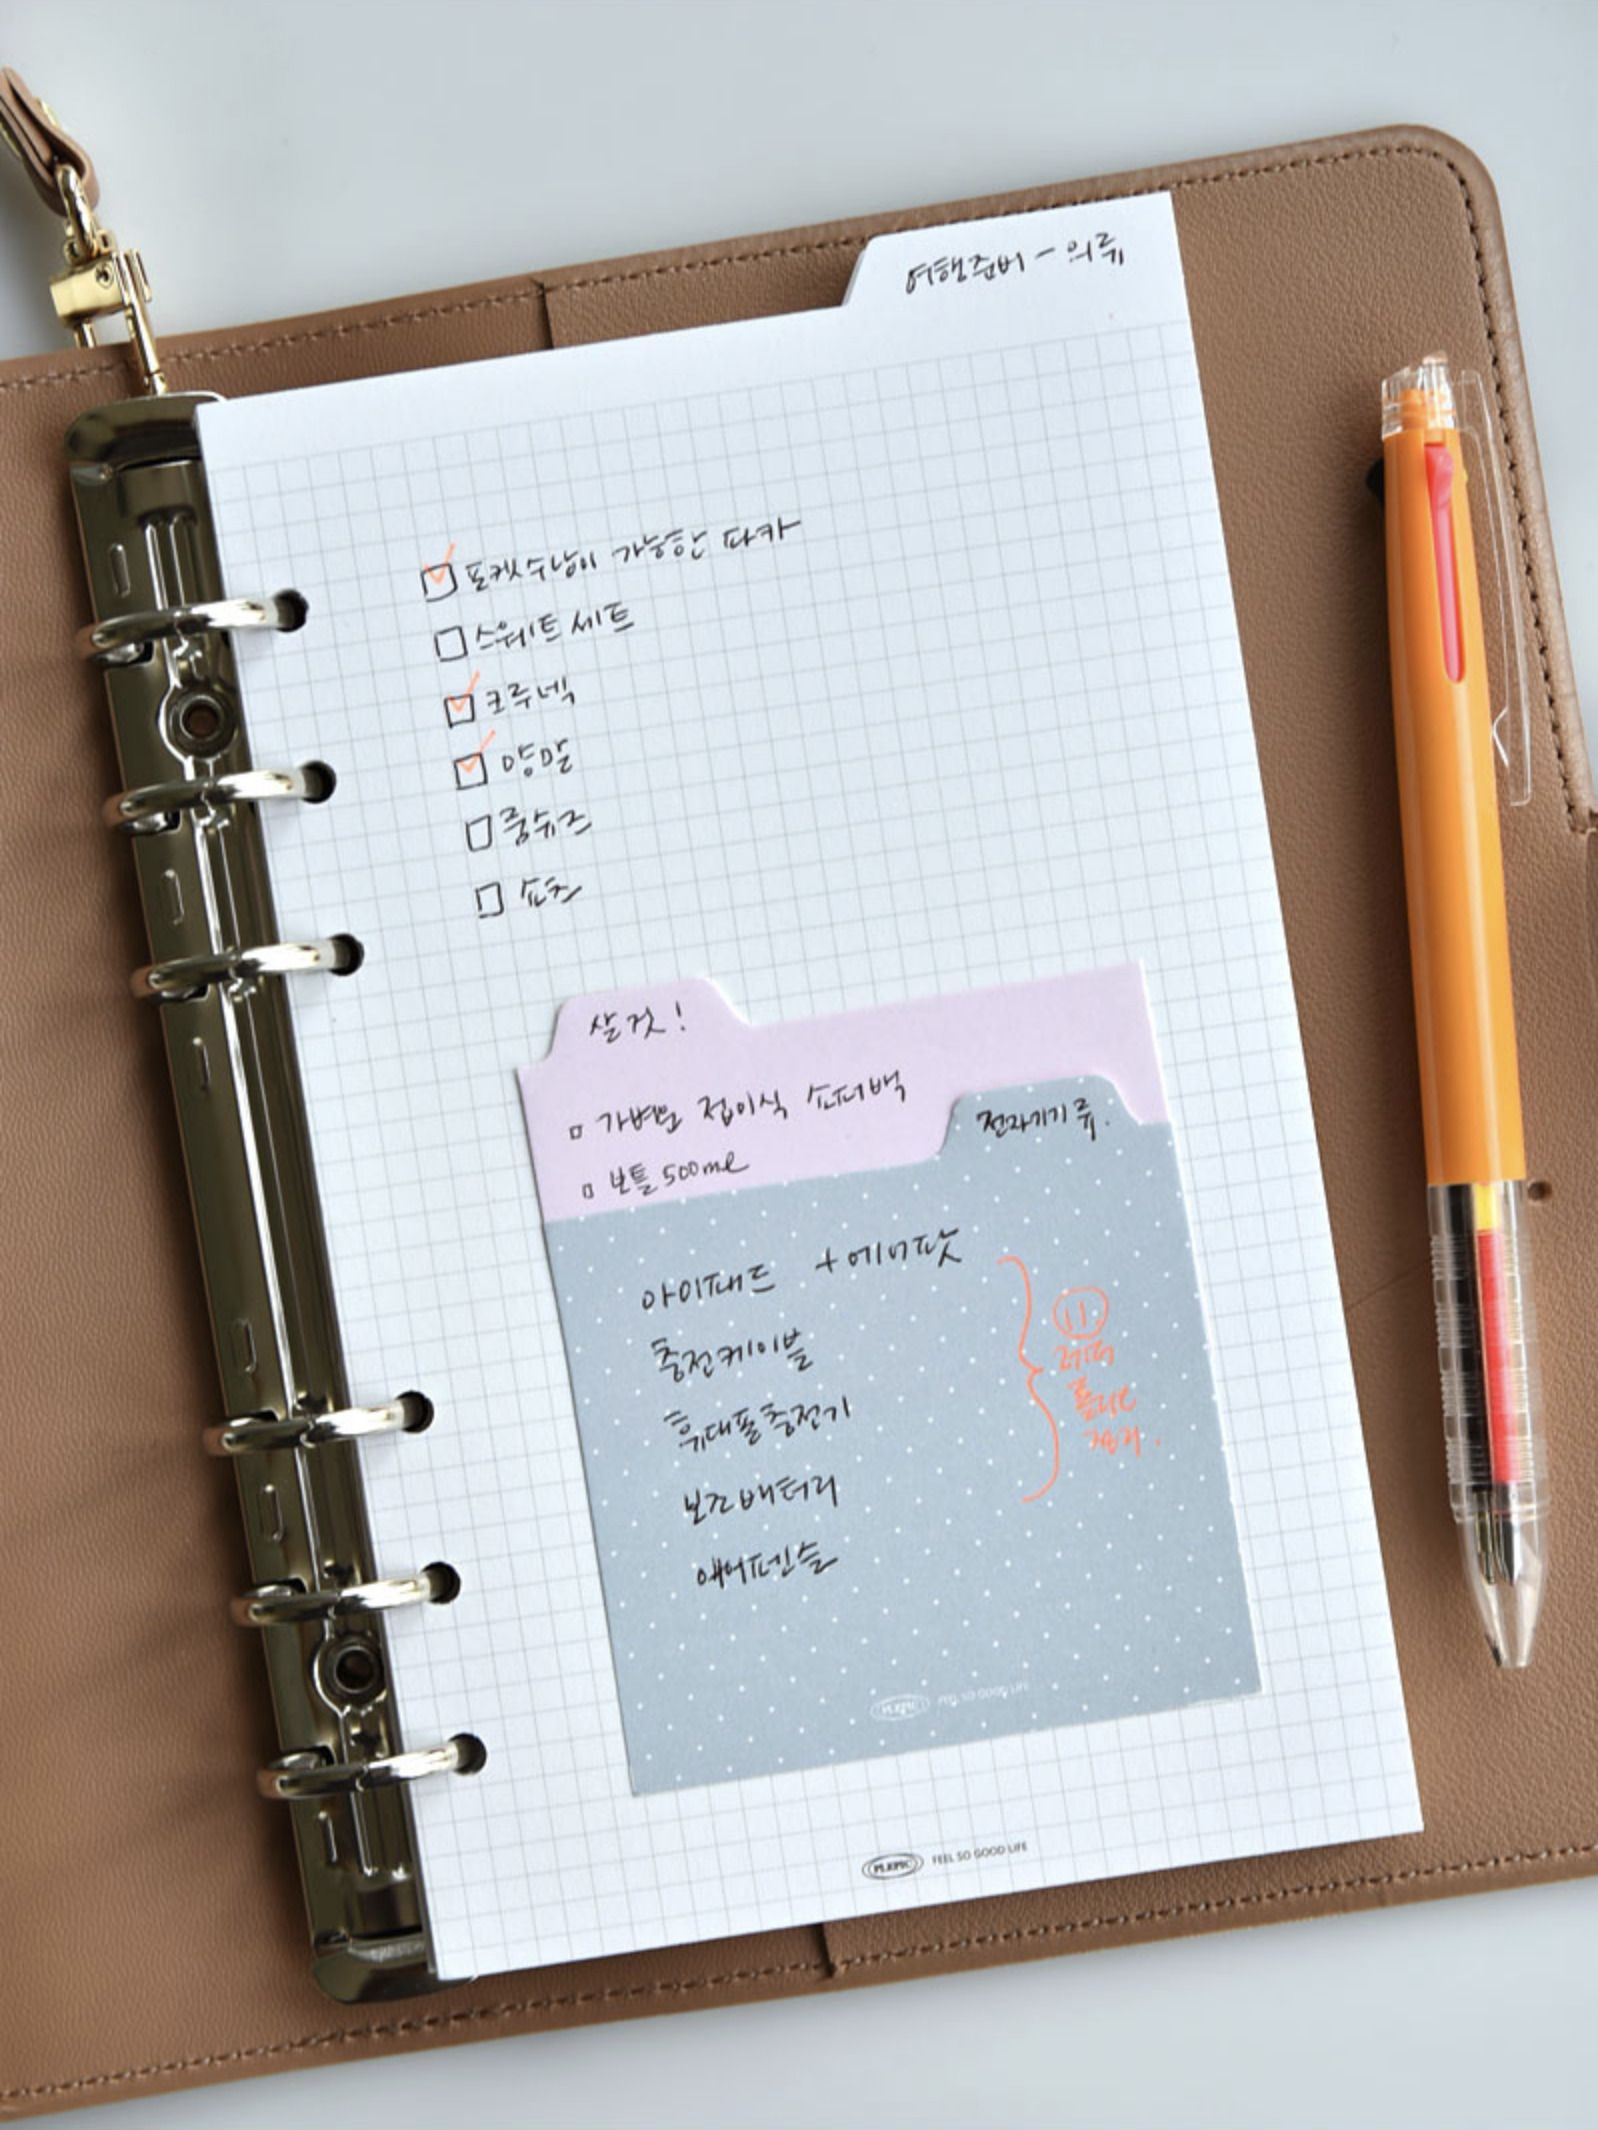 여행준비 - 의류
포켓수납이 가능한 파카
스웨트 세트
크루넥
양말
룸슈즈
쇼츠
살것!
가벼운 접이식 쇼퍼백
보틀 500ml
전자기기류.
아이패드 +에어팟
충전케이블
휴대폴충전기
보조배터리
애어펜슬
PLEPIC FEEL SO GOOD LIFE
PLEPIC FEEL SO GOOD LIFE